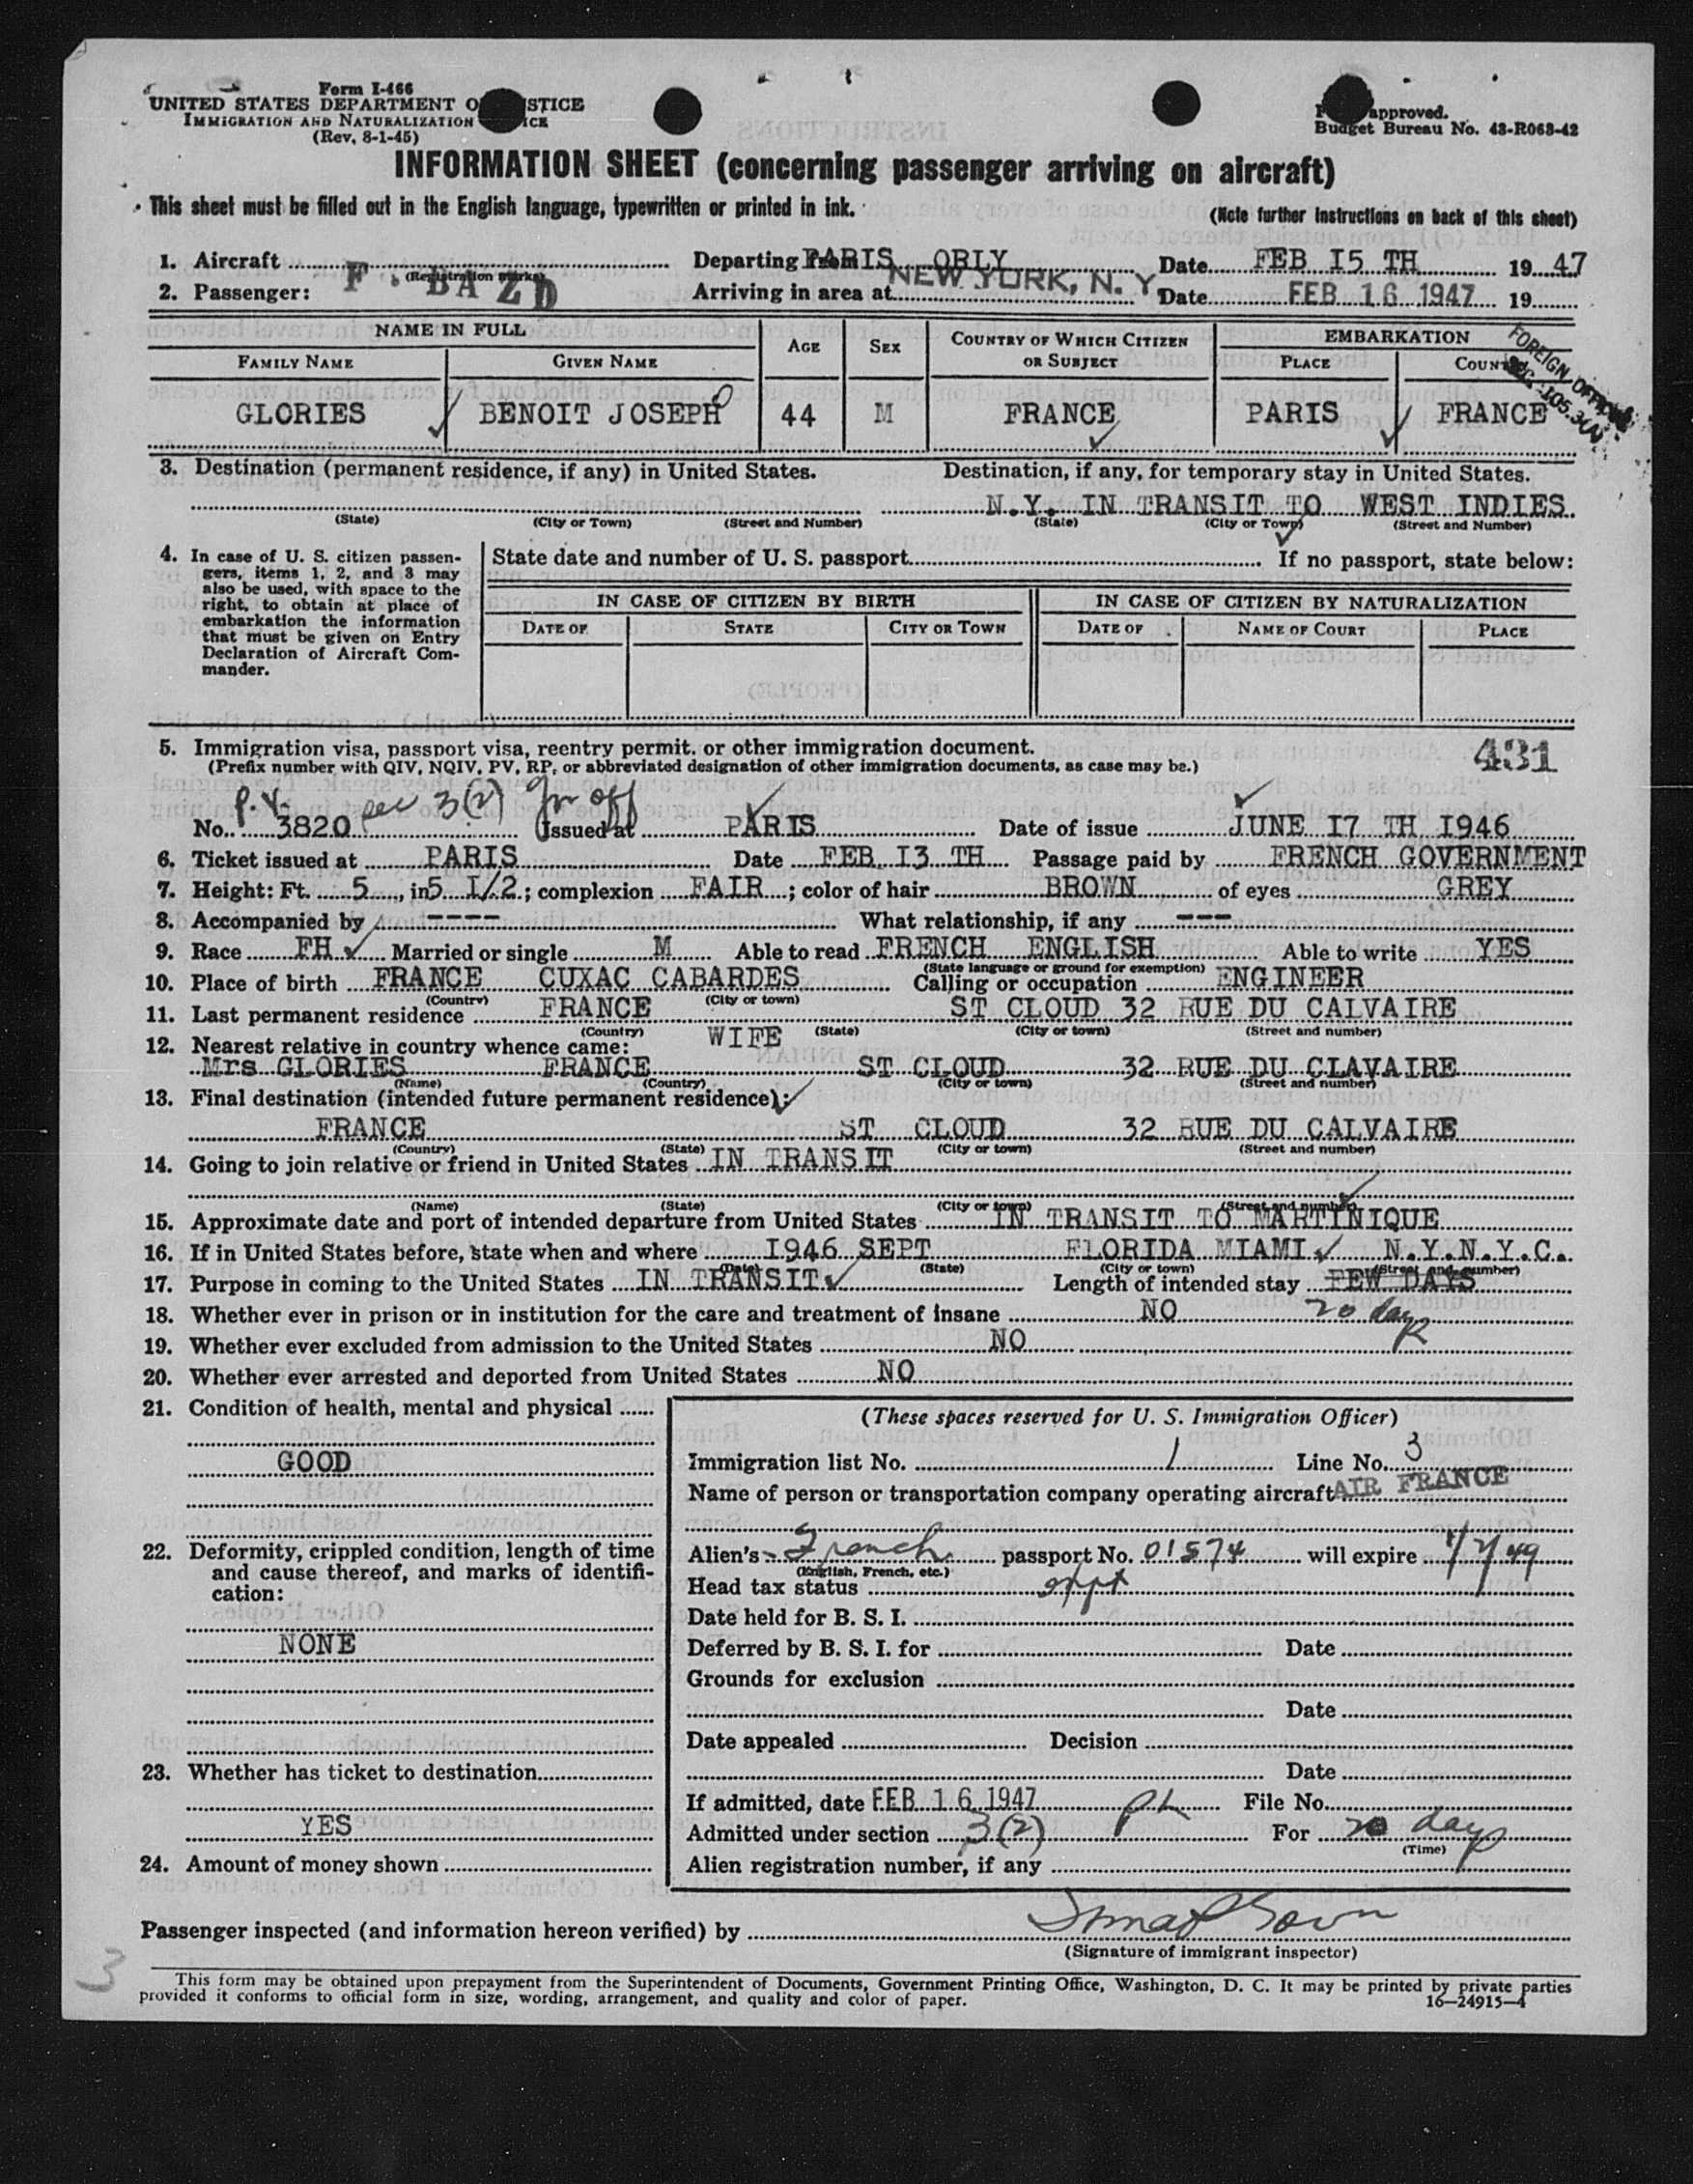 Form I-466
UNITED STATES DEPARTMENT O STICE
IMMIGRATION AND NATURALIZATION ICE
(Rev. 8-1-45)
approved.
Budget Bureau No. 43-R063-42
INFORMATION SHEET (concerning passenger arriving on aircraft)
This sheet must be filled out in the English language, typewritten or printed in ink.
(Note further instructions on back of this sheet)
1. Aircraft F. BAZD (Registration marks) Departing from PARIS ORLY Date FEB I5 TH 19 47
2. Passenger: Arriving in area at NEW YORK, N. Y. Date FEB 16 1947 19
NAME IN FULL AGE SEX COUNTRY OF WHICH CITIZEN OR SUBJECT EMBARKATION
FAMILY NAME GIVEN NAME PLACE COUNT
FOREIGN OFFICIAL
105.3(A)
GLORIES BENOIT JOSEPH 44 M FRANCE PARIS FRANCE
3. Destination (permanent residence, if any) in United States. Destination, if any, for temporary stay in United States.
N.Y. IN TRANSIT TO WEST INDIES.
(State) (City or Town) (Street and Number) (State) (City or Town) (Street and Number)
4. In case of U. S. citizen passen-
gers, items 1, 2, and 3 may
also be used, with space to the
right, to obtain at place of
embarkation the information
that must be given on Entry
Declaration of Aircraft Com-
mander.
State date and number of U. S. passport If no passport, state below:
IN CASE OF CITIZEN BY BIRTH IN CASE OF CITIZEN BY NATURALIZATION
DATE OF STATE CITY OR TOWN DATE OF NAME OF COURT PLACE
5. Immigration visa, passport visa, reentry permit. or other immigration document.
(Prefix number with QIV, NQIV, PV, RP, or abbreviated designation of other immigration documents, as case may be.)
431
P.V. sec 3(2) Gov off
No. 3820 Issued at PARIS Date of issue JUNE I7 TH I946
6. Ticket issued at PARIS Date FEB I3 TH Passage paid by FRENCH GOVERNMENT
7. Height: Ft. 5, in 5 I/2; complexion FAIR; color of hair BROWN of eyes GREY
8. Accompanied by ---- What relationship, if any ---
9. Race FH Married or single M Able to read FRENCH ENGLISH Able to write YES
(State language or ground for exemption)
10. Place of birth FRANCE CUXAC CABARDES Calling or occupation ENGINEER
(Country) (City or town)
11. Last permanent residence FRANCE ST CLOUD 32 RUE DU CALVAIRE
(Country) (State) (City or town) (Street and number)
12. Nearest relative in country whence came: WIFE
Mrs GLORIES FRANCE ST CLOUD 32 RUE DU CLAVAIRE
(Name) (Country) (City or town) (Street and number)
13. Final destination (intended future permanent residence):
FRANCE ST CLOUD 32 RUE DU CALVAIRE
(Country) (State) (City or town) (Street and number)
14. Going to join relative or friend in United States IN TRANSIT
(Name) (State) (City or town) (Street and number)
15. Approximate date and port of intended departure from United States IN TRANSIT TO MARTINIQUE
16. If in United States before, state when and where I946 SEPT FLORIDA MIAMI N.Y.N.Y.C.
(Date) (State) (City or town) (Street and number)
17. Purpose in coming to the United States IN TRANSIT Length of intended stay FEW DAYS
18. Whether ever in prison or in institution for the care and treatment of insane NO 20 days
19. Whether ever excluded from admission to the United States NO
20. Whether ever arrested and deported from United States NO
21. Condition of health, mental and physical
GOOD
22. Deformity, crippled condition, length of time
and cause thereof, and marks of identifi-
cation:
NONE
23. Whether has ticket to destination
YES
24. Amount of money shown
(These spaces reserved for U. S. Immigration Officer)
Immigration list No. 1 Line No. 3
Name of person or transportation company operating aircraft AIR FRANCE
Alien's French passport No. 01574 will expire 1/2/49
(English, French, etc.)
Head tax status expt
Date held for B. S. I.
Deferred by B. S. I. for Date
Grounds for exclusion
Date
Date appealed Decision
Date
If admitted, date FEB 16 1947 File No.
Admitted under section 3(2) For 20 days
(Time)
Alien registration number, if any
Passenger inspected (and information hereon verified) by
(Signature of immigrant inspector)
3
This form may be obtained upon prepayment from the Superintendent of Documents, Government Printing Office, Washington, D. C. It may be printed by private parties
provided it conforms to official form in size, wording, arrangement, and quality and color of paper.
16—24915-4